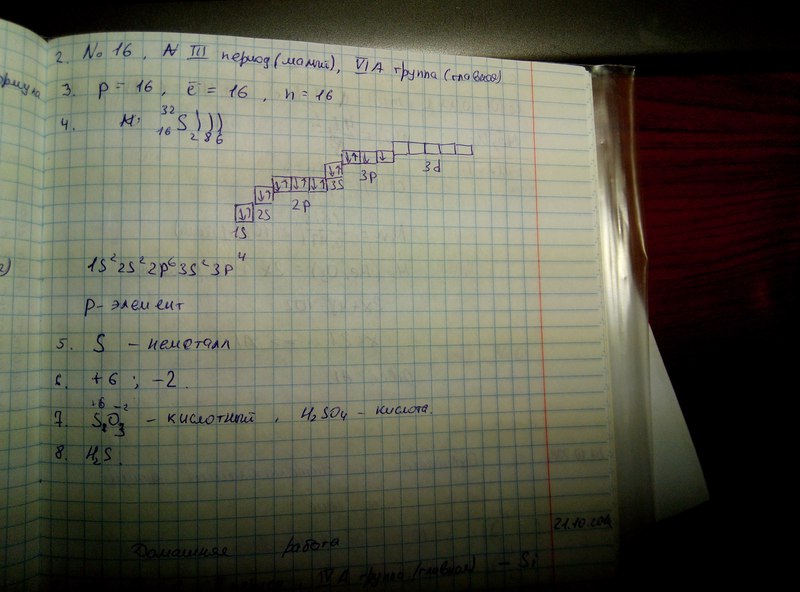 2. № 16, III период (малый), VI A группа (главная)
3. p = 16, ē = 16, n = 16
4. 32 16 S ) ) ) 2 8 6
3d
3p
3S
2p
2S
1S
1S² 2S² 2p⁶ 3S² 3p⁴
p-элемент
5. S – неметалл
6. +6 ; -2.
7. S⁺⁶O₃⁻² – кислотный, H₂SO₄ – кислота.
8. H₂S.
21.10.
Домашняя работа
IV A группа (главная) – Si